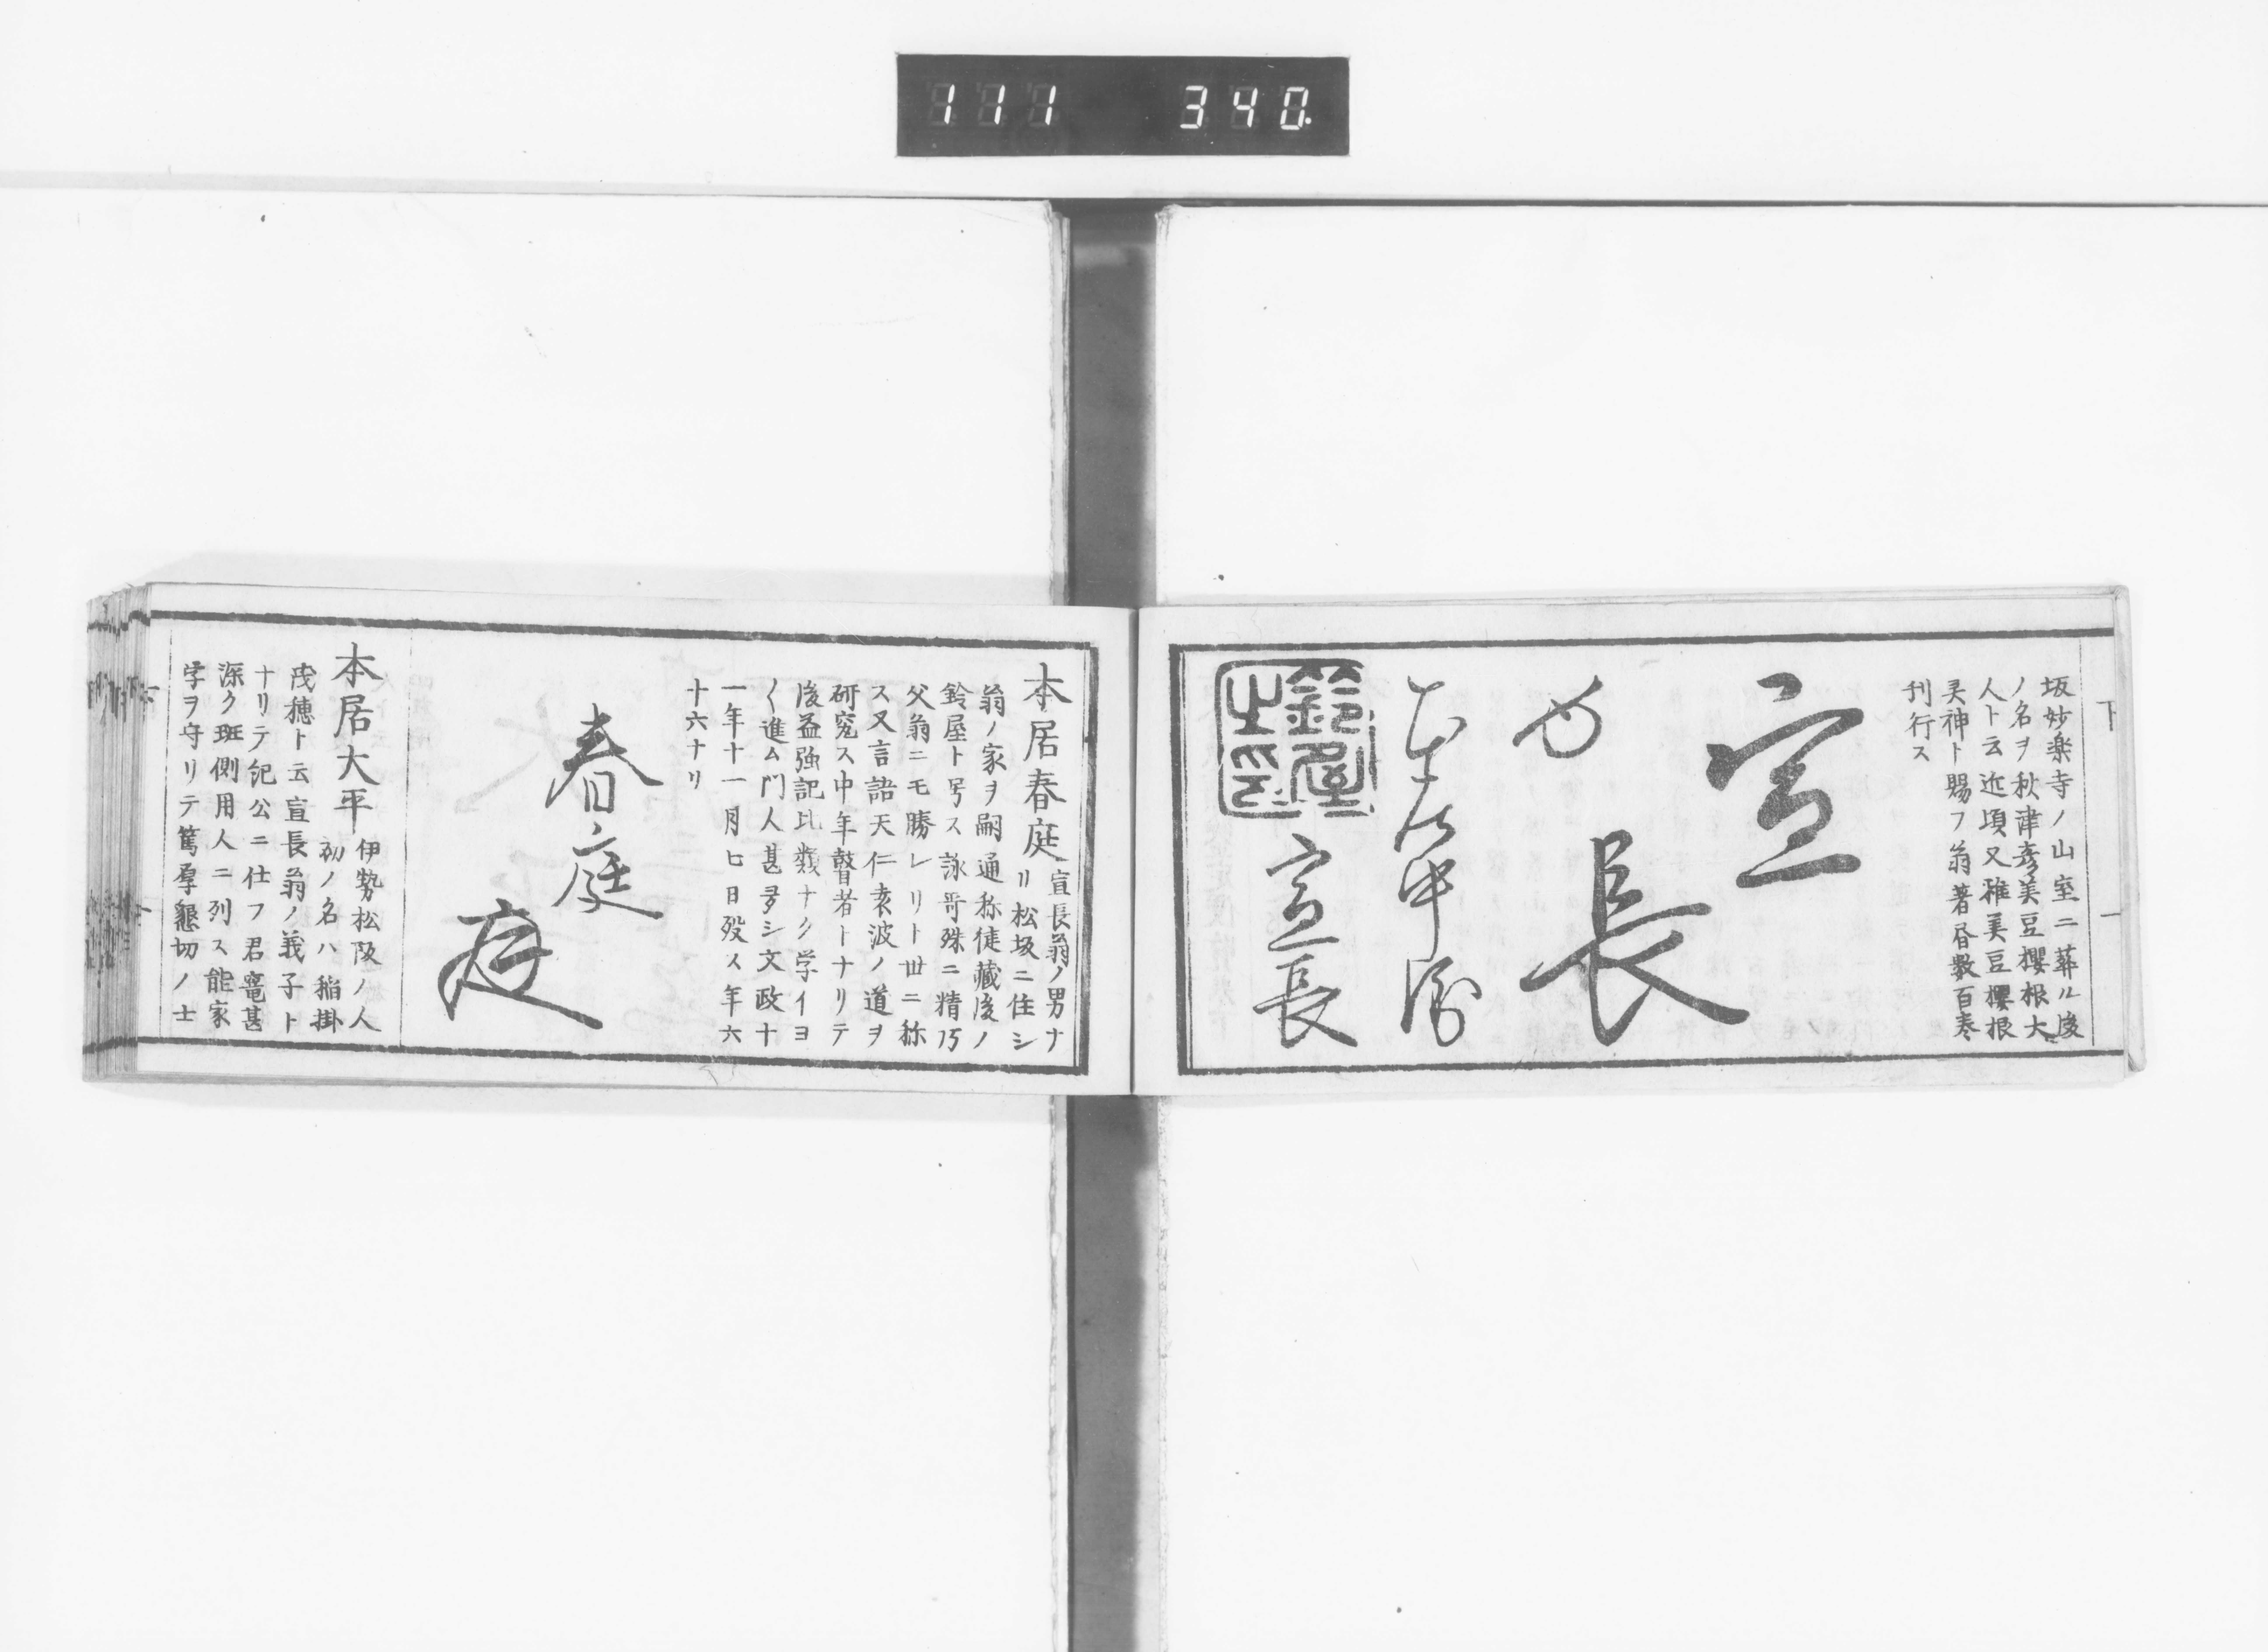 111 340
下
一
坂妙楽寺ノ山室ニ葬ル後
ノ名ヲ秋津彦美豆櫻根大
人ト云近頃又雅美豆櫻根
灵神ト賜フ翁著昏數百卷
刊行ス
宣
長
本居中衛
宣長
鈴屋
之印
本居春庭
宣長翁ノ男ナ
リ松坂ニ住シ
翁ノ家ヲ嗣通称徤藏後ノ
鈴屋ト号ス詠哥殊ニ精巧
父翁ニモ勝レリト世ニ称
ス又言語天仁袁波ノ道ヲ
研究ス中年瞽者トナリテ
後益强記比類ナク学イヨ
く進ム門人甚多シ文政十
一年十一月七日歿ス年六
十六ナリ
春庭
庭
本居大平
伊勢松阪ノ人
初ノ名ハ稲掛
茂穂ト云宣長翁ノ義子ト
ナリテ紀公ニ仕フ君寵甚
深ク班側用人ニ列ス能家
学ヲ守リテ篤厚懇切ノ士